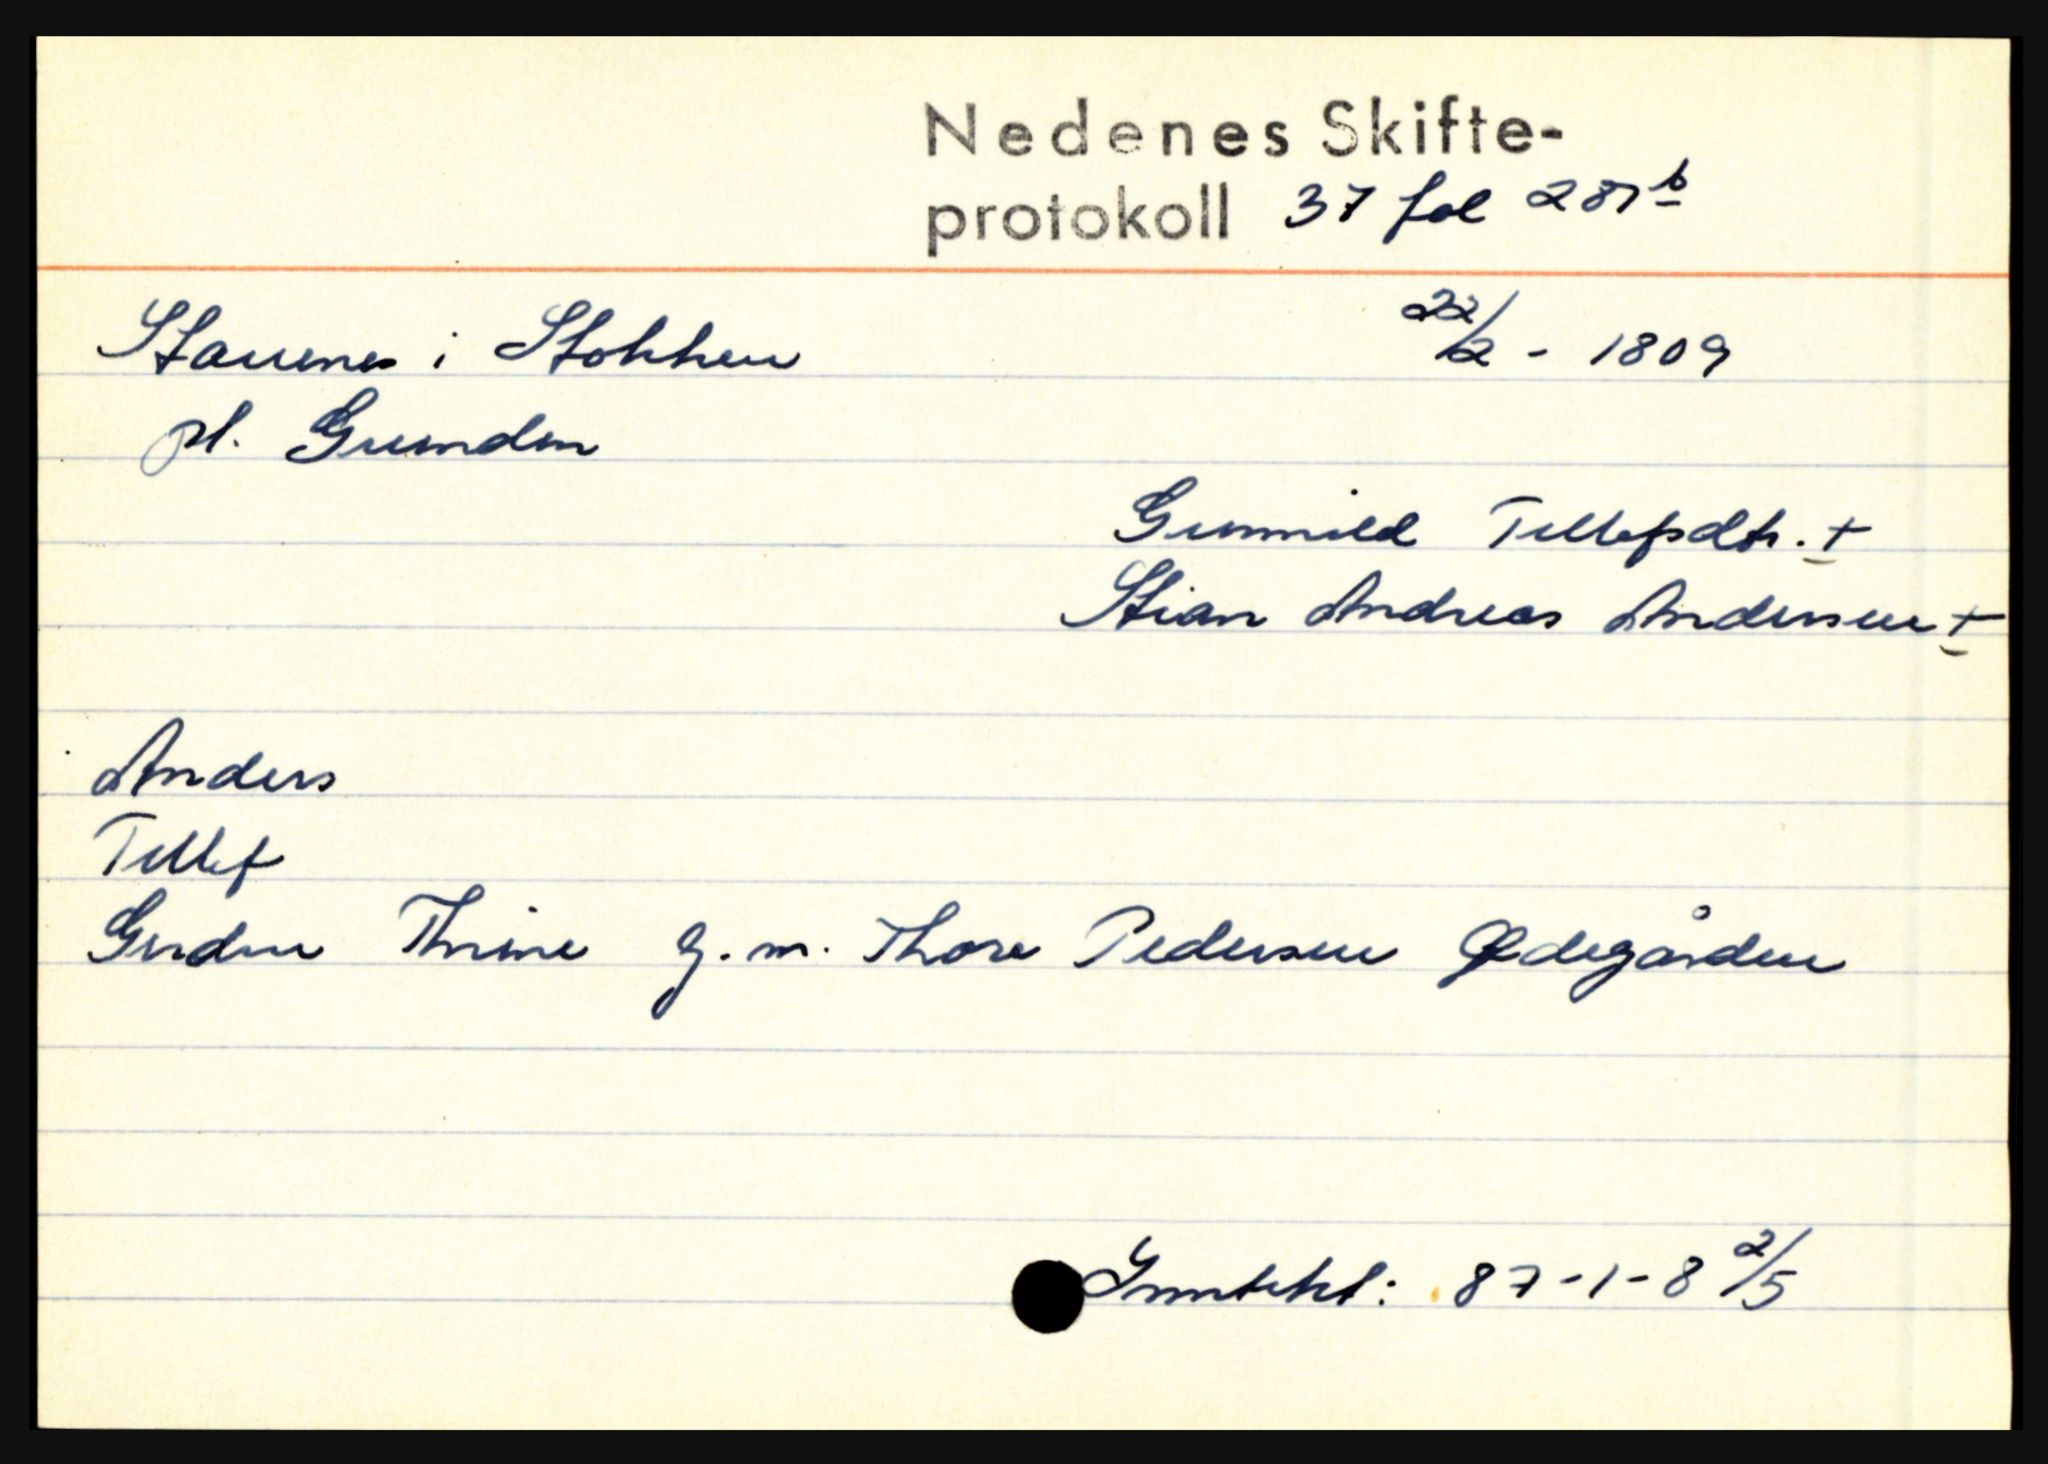 Nedenes Skifte-
protokoll 37 fol 287b
Stauenes i Stokken 22/2 - 1809
pl. Grunden
Gunnild Tellefsdtr. +
Stian Andreas Andersen +
Anders
Tellef
Gurden Thrine g.m. Thore Pedersen Ødegården
Inntekt: 87-1-8 2/5